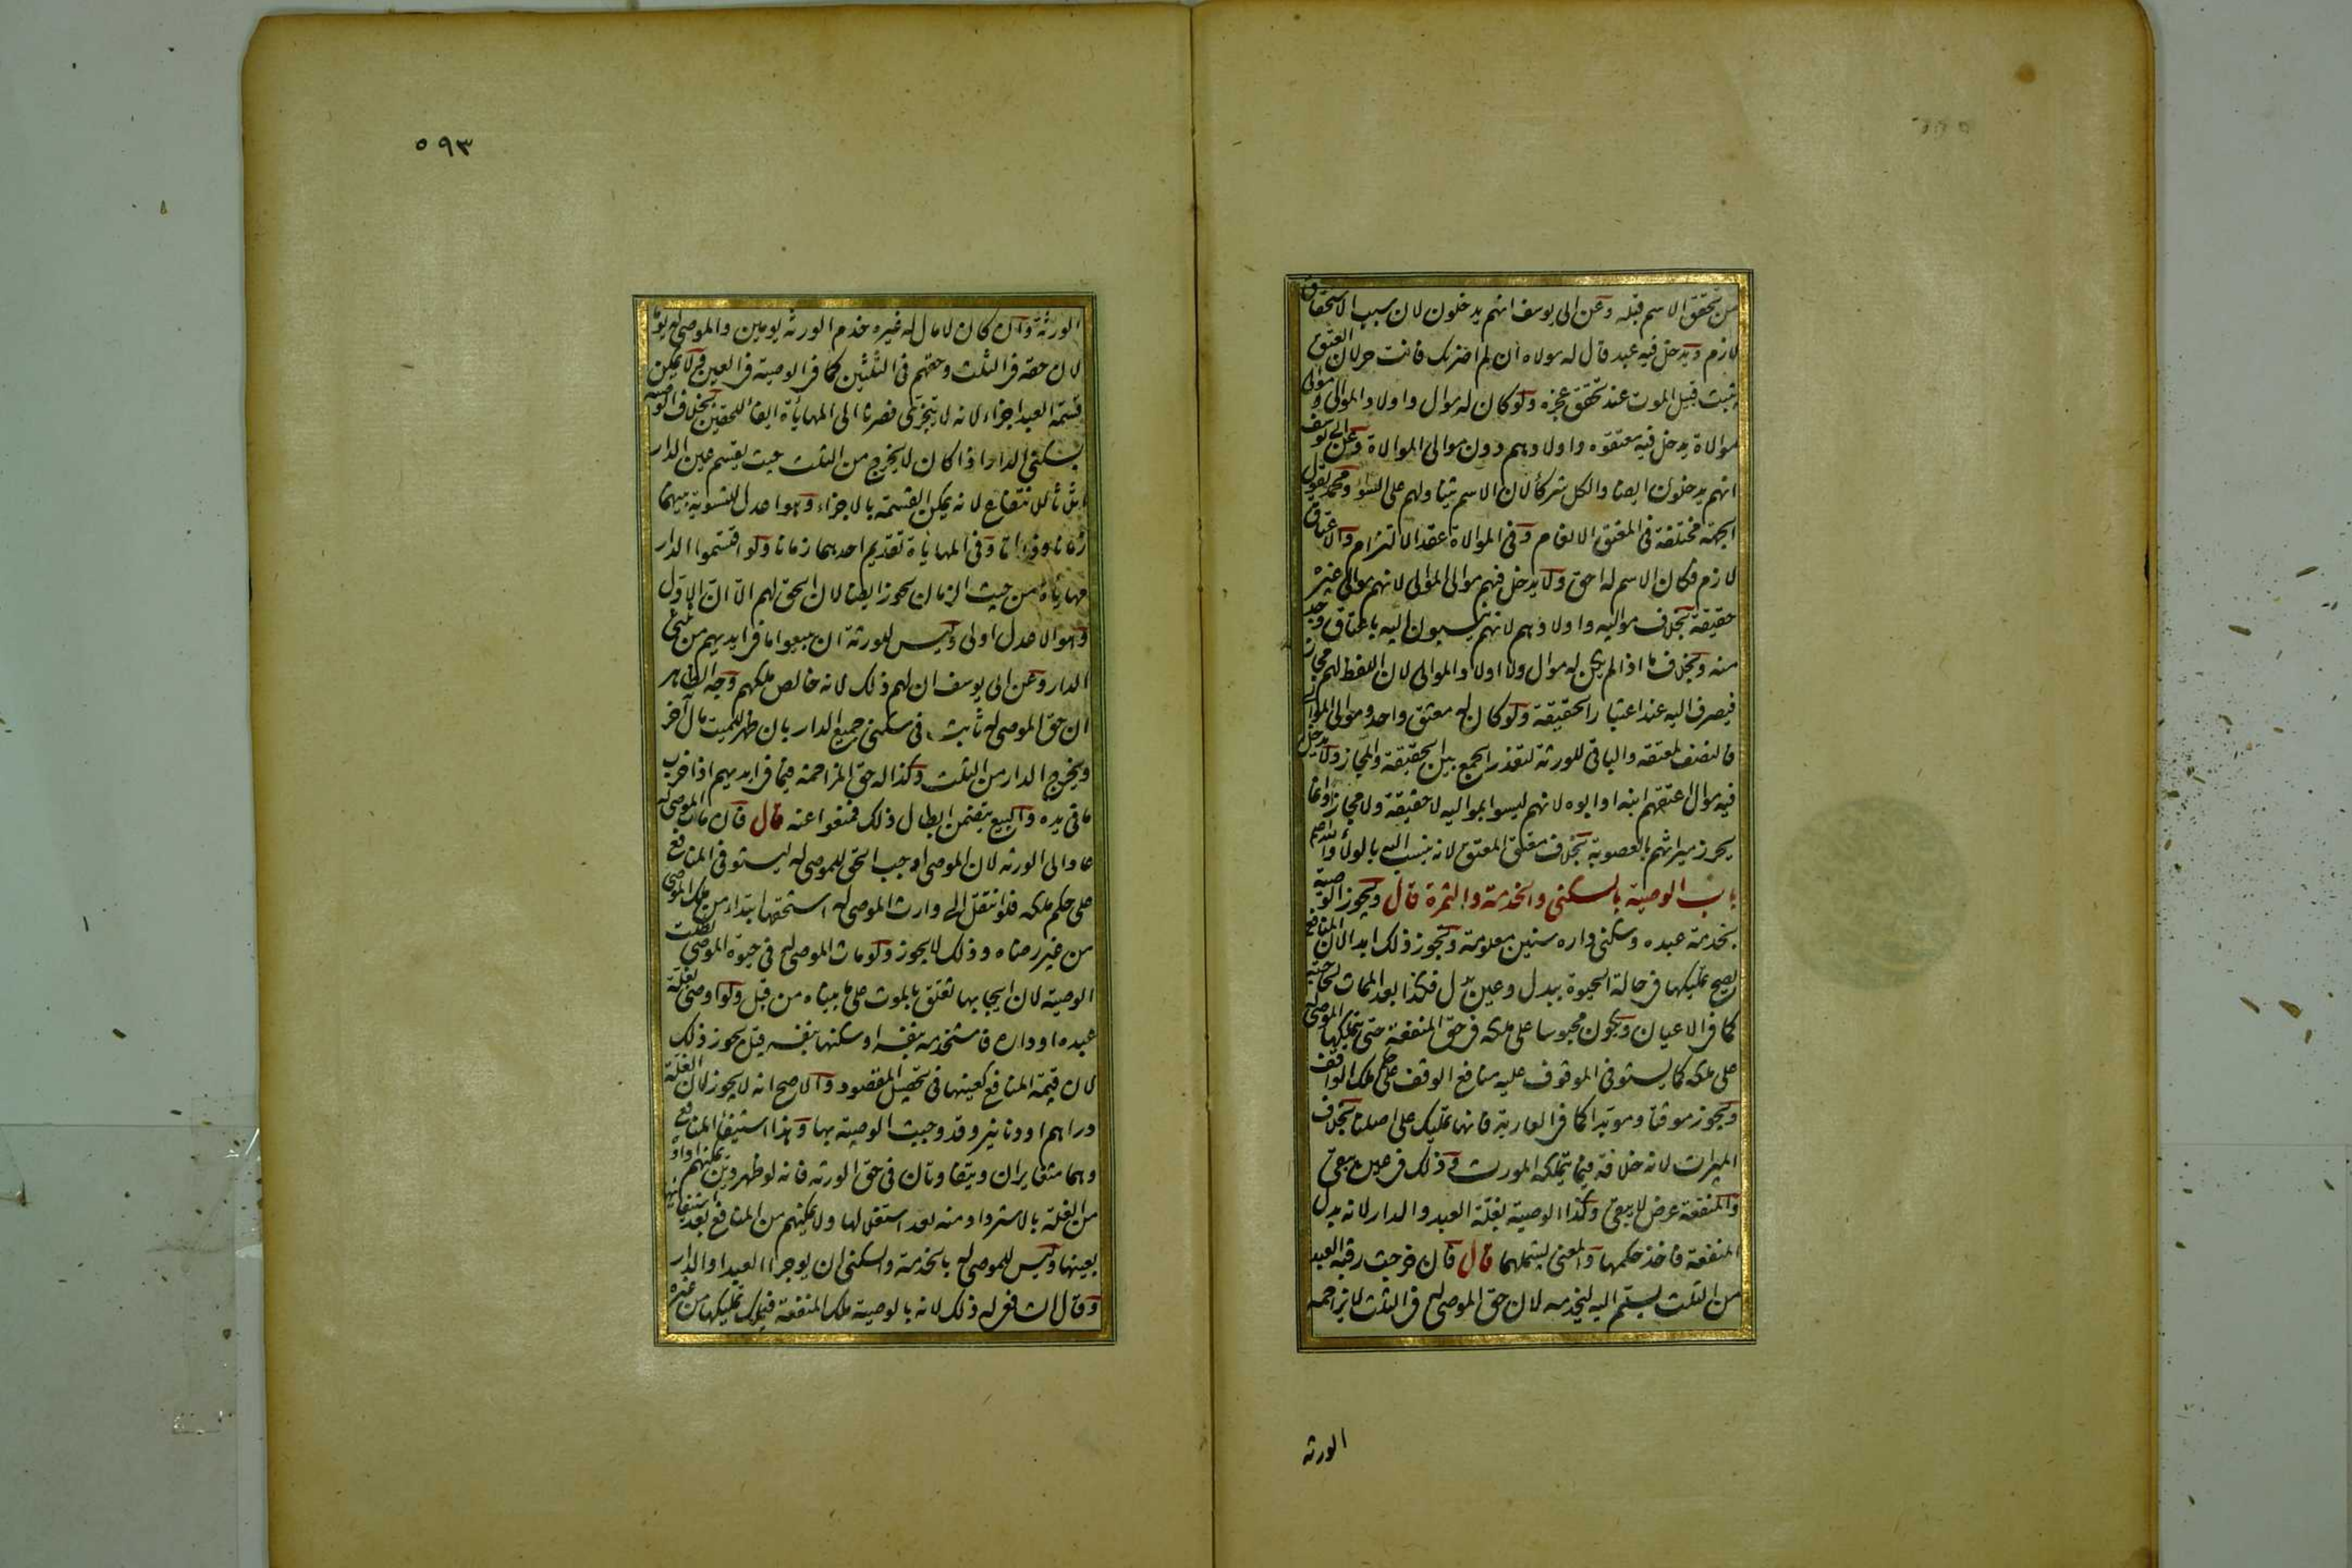 من تحقق الاسم قبله وعن ابى يوسف انهم يدخلون لان سبب الاستحقاق
لازم ويدخل فيه عبد قال له مولاه ان لم اضربك فانت حر لان العتق
يثبت قبيل الموت عند تحقق عجزه ولو كان له موال واولاد الموالى وموالى
موالاة يدخل فيه معتقوه واولادهم دون موالى الموالاة وعن ابى يوسف
انهم يدخلون ايضا والكل شركاء لان الاسم يتناولهم على السواء ومحمد يقول
الجهة مختلفة فى المعتق الانعام وفى الموالاة عقد الالتزام والاعتاق
لازم فكان الاسم له احق ولا يدخل فيهم موالى الموالى لانهم موالى غيره
حقيقة بخلاف مواليه واولادهم لانهم ينسبون اليه باعتاق وجد
منه وبخلاف ما اذا لم يكن له موال ولا اولاد الموالى لان اللفظ لهم مجاز
فيصرف اليه عند اعتبار الحقيقة ولو كان له معتق واحد وموالى الموالى
فالنصف لمعتقه والباقى للورثة لتعذر الجمع بين الحقيقة والمجاز ولا يدخل
فيه موال اعتقهم ابنه او ابوه لانهم ليسوا بمواليه لا حقيقة ولا مجازا وانما
يحرز ميراثهم بالعصوبة بخلاف معتق المعتق لانه ينسب اليه بالولاء والله اعلم
باب الوصية بالسكنى والخدمة والثمرة قال ويجوز الوصية
بخدمة عبده وسكنى داره سنين معلومة وتجوز ذلك ابدا لان المنافع
يصح تمليكها فى حالة الحيوة ببدل وغير بدل فكذا بعد الممات لحاجته
كما فى الاعيان ويكون محبوسا على ملكه فى حق المنفعة حتى يتملكها الموصى له
على ملكه كما يستوفى الموقوف عليه منافع الوقف على حكم ملك الواقف
ويجوز موقتا ومؤبدا كما فى العارية فانها تمليك على اصلنا بخلاف
الميراث لانه خلافة فيما يتملكه المورث وذلك فى عين يبقى
والمنفعة عرض لا يبقى وكذا الوصية بغلة العبد والدار لانه بدل
المنفعة فاخذ حكمها والمعنى يشملهما قال فان خرجت رقبة العبد
من الثلث يسلم اليه ليخدمه لان حق الموصى له فى الثلث لا يزاحمه
الورثة
٥٩٣
الورثة وان كان لا مال له غيره خدم الورثة يومين والموصى له يوما
لان حقه فى الثلث وحقهم فى الثلثين كما فى الوصية فى العين ولا يمكن
قسمة العبد اجزاء لانه لا يتجزى فصرنا الى المهايأة ايفاء للحقين بخلاف الوصية
بسكنى الدار اذا كان لا يخرج من الثلث حيث يقسم عين الدار
اثلاثا للانتفاع لانه يمكن القسمة بالاجزاء وهو اعدل للتسوية بينهما
زمانا وذاتا وفى المهايأة تقديم احدهما زمانا ولو اقتسموا الدار
مهايأة من حيث الزمان يجوز ايضا لان الحق لهم الا ان الاول
وهو الاعدل اولى وليس للورثة ان يبيعوا ما فى ايديهم من ثلثى
الدار وعن ابى يوسف ان لهم ذلك لانه خالص ملكهم وجه الظاهر
ان حق الموصى له ثابت فى سكنى جميع الدار بان ظهر للميت مال آخر
ويخرج الدار من الثلث وكذا له حق المزاحمة فيما فى ايديهم اذا خرب
ما فى يده والبيع يتضمن ابطال ذلك فمنعوا عنه قال فان مات الموصى له
عاد الى الورثة لان الموصى اوجب الحق للموصى له ليستوفى المنافع
على حكم ملكه فلو انتقل الى وارث الموصى له استحقها ابتداء من ملك الموصى
من غير رضاه وذلك لا يجوز ولو مات الموصى له فى حيوة الموصى بطلت
الوصية لان ايجابها تعلق بالموت على ما بيناه من قبل ولو اوصى بغلة
عبده او داره فاستخدمه بنفسه او سكنها بنفسه قيل يجوز ذلك
لان قيمة المنافع كعينها فى تحصيل المقصود والاصح انه لا يجوز لان الغلة
دراهم او دنانير وقد وجبت الوصية بها وهذا استيفاء المنافع
وهما متغايران ويتفاوتان فى حق الورثة فانه لو ظهر دين يمكنهم اداؤه
من الغلة بالاسترداد منه بعد استغلالها ولا يمكنهم من المنافع بعد استيفائها
بعينها وليس للموصى له بالخدمة والسكنى ان يوجر العبد او الدار
وقال الشافعى له ذلك لانه بالوصية ملك المنفعة فيملك تمليكها من غيره